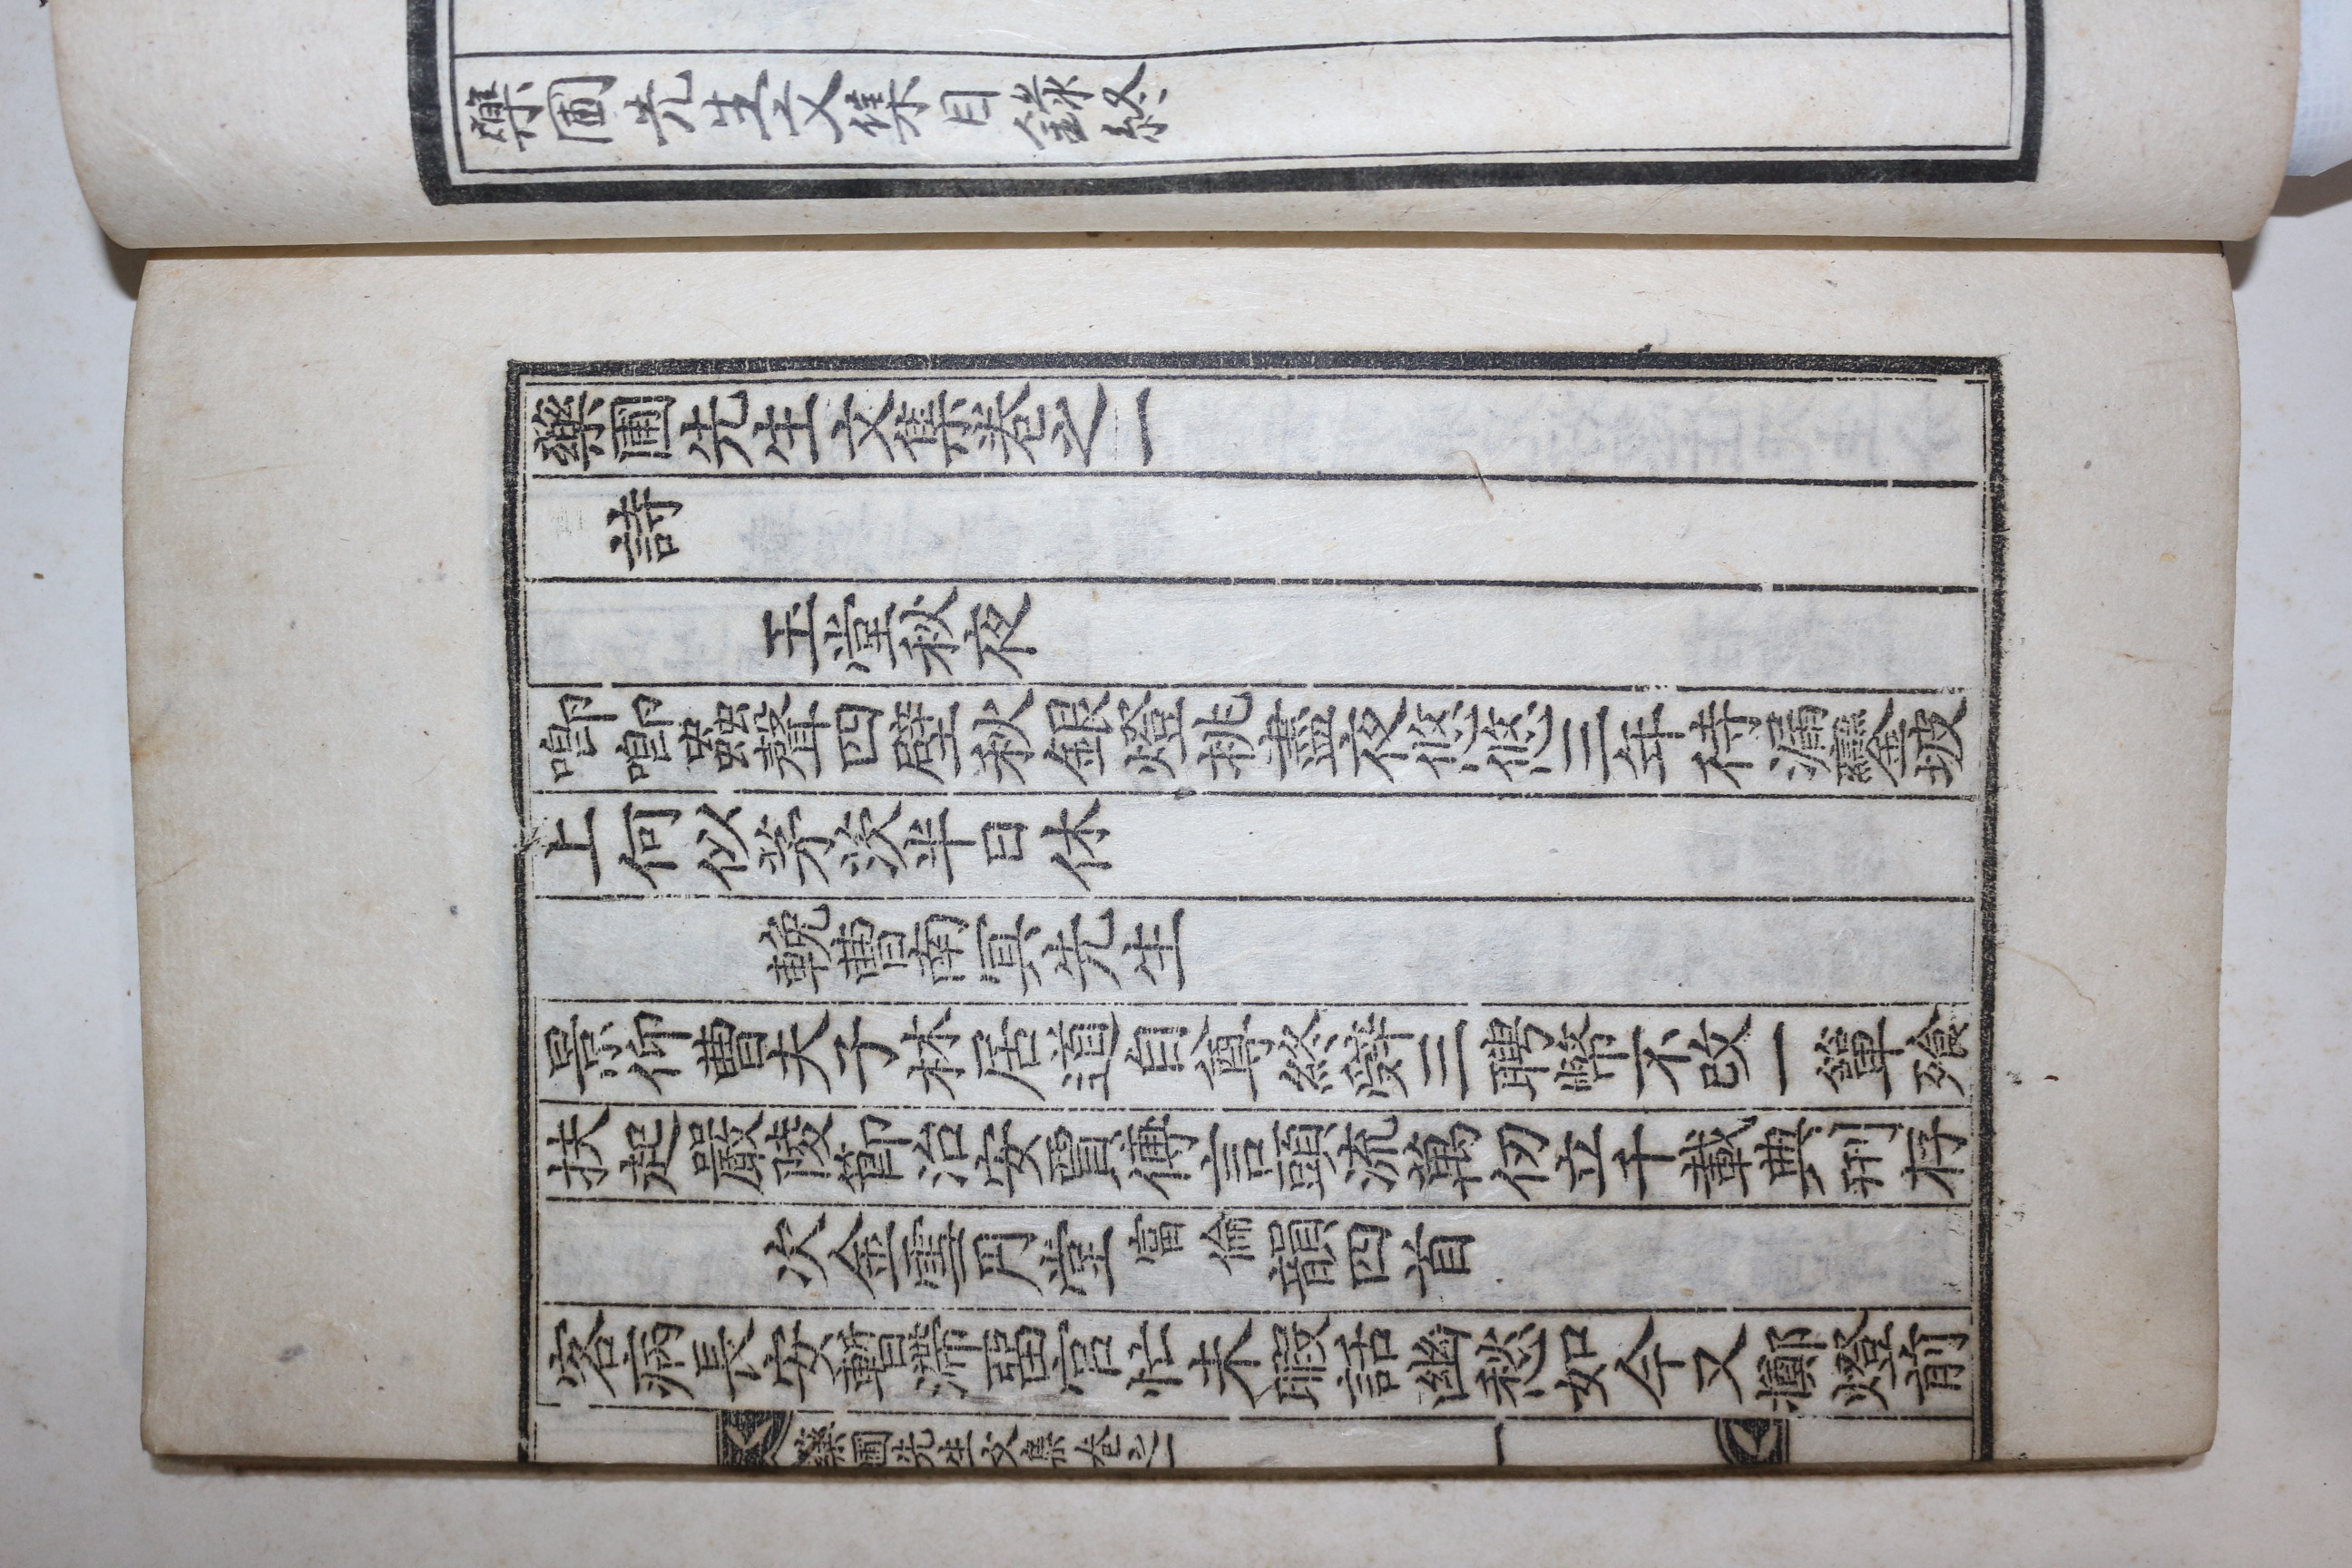 藥圃先生文集目錄終
藥圃先生文集卷之一
詩
玉堂秋夜
喞喞蟲聲四壁秋銀燈挑盡夜悠悠三年待漏鑾坡
上何似茅茨半日休
輓曹南冥先生
景仰曹夫子林居道自尊終辤三聘幣不改一簞飱
扶起嚴陵節治安賈傅言頭流萬仞立千載典刑存
次金雪月堂富倫韻四首
客病長安暫滯畱官忙未暇話幽愁如今又擲燈前
藥圃先生文集卷之一
一